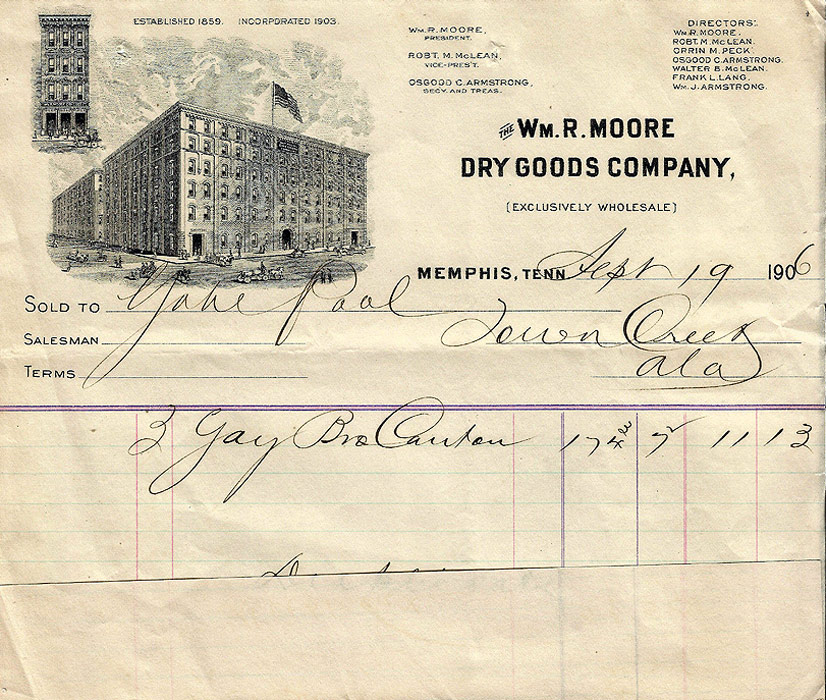 ESTABLISHED 1859. INCORPORATED 1903.
WM. R. MOORE,
PRESIDENT.
ROBT. M. McLEAN,
VICE-PRES'T.
OSGOOD C. ARMSTRONG,
SECY. AND TREAS.
DIRECTORS:
WM. R. MOORE.
ROBT. M. McLEAN.
ORRIN M. PECK.
OSGOOD C. ARMSTRONG.
WALTER B. McLEAN.
FRANK L. LANG.
WM. J. ARMSTRONG.
THE WM. R. MOORE
DRY GOODS COMPANY,
(EXCLUSIVELY WHOLESALE)
MEMPHIS, TENN. Sept 19 1906
SOLD TO Pool
SALESMAN Town Creek
TERMS Ala
3 Gay Bro Canton 174 11 13